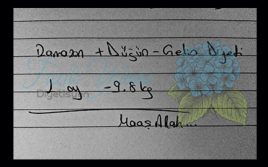 Ramazan + Düğün - Gelin Diyeti
1 ay -9.8 kg
Diyetisyen
Maaş Allah...